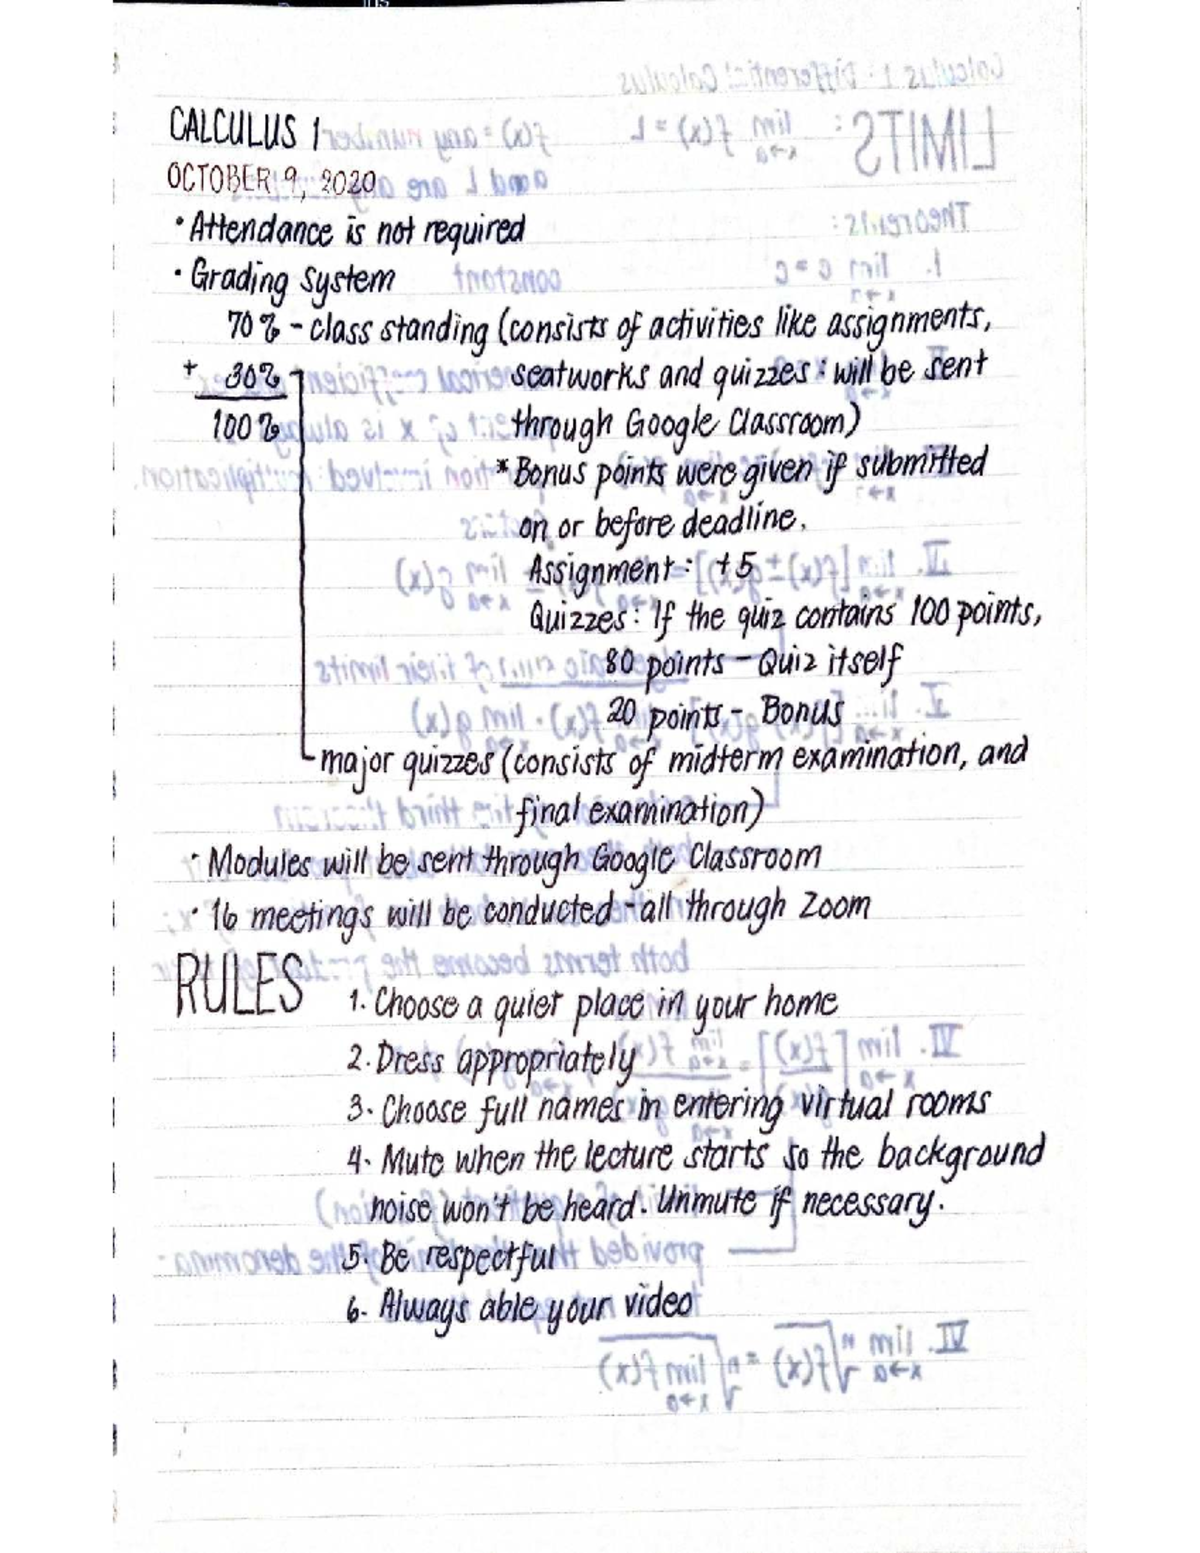 CALCULUS 1
OCTOBER 9, 2020
• Attendance is not required
• Grading system
70% - class standing (consists of activities like assignments,
+ 30% seatworks and quizzes : will be sent
100% through Google Classroom)
* Bonus points were given if submitted
on or before deadline.
Assignment : +5
Quizzes : If the quiz contains 100 points,
80 points - Quiz itself
20 points - Bonus
major quizzes (consists of midterm examination, and
final examination)
• Modules will be sent through Google Classroom
• 16 meetings will be conducted - all through Zoom
RULES 1. Choose a quiet place in your home
2. Dress appropriately
3. Choose full names in entering virtual rooms
4. Mute when the lecture starts so the background
noise won't be heard. Unmute if necessary.
5. Be respectful
6. Always able your video